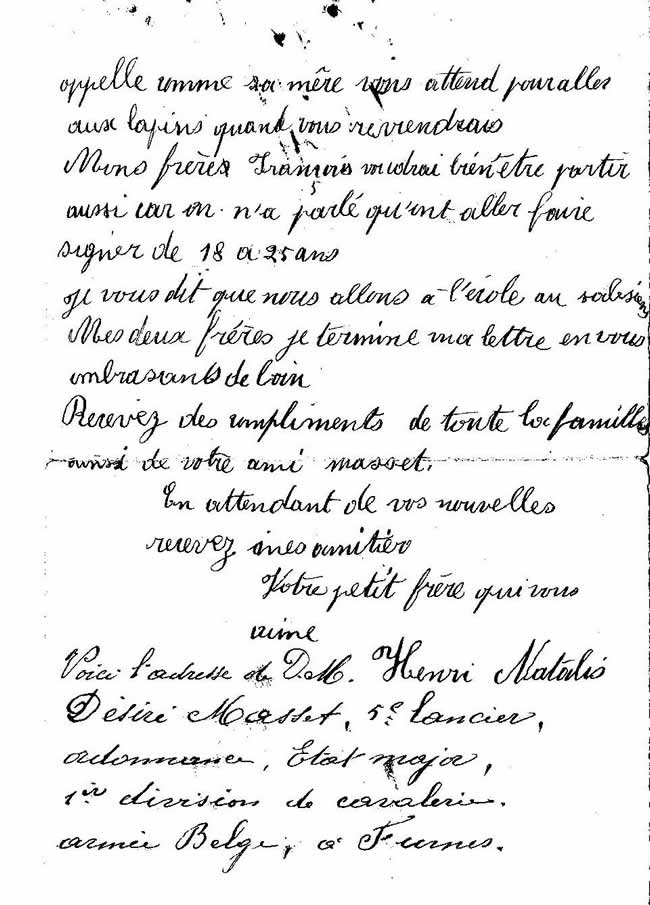 appelle comme sa mère vous attend pour aller
aux lapins quand vous revrendrais
Mons frères François voudrai bien être partir
aussi car on n'a parlé qu'ont aller faire
signer de 18 a 25 ans
je vous dit que nous allons a l'école au salésiens
Mes deux fréres je termine ma lettre en vous
embrasants de loin
Recevez des compliments de toute la familles
aussi de votre ami masset.
En attendant de vos nouvelles
recevez mes amitiés
Votre petit frère qui vous
aime
Henri Natalis
Voici l'adresse de D.M.
Désiré Masset, 5e lancier,
ordonnance, Etat major,
1er division de cavalerie.
armée Belge, à Furnes.